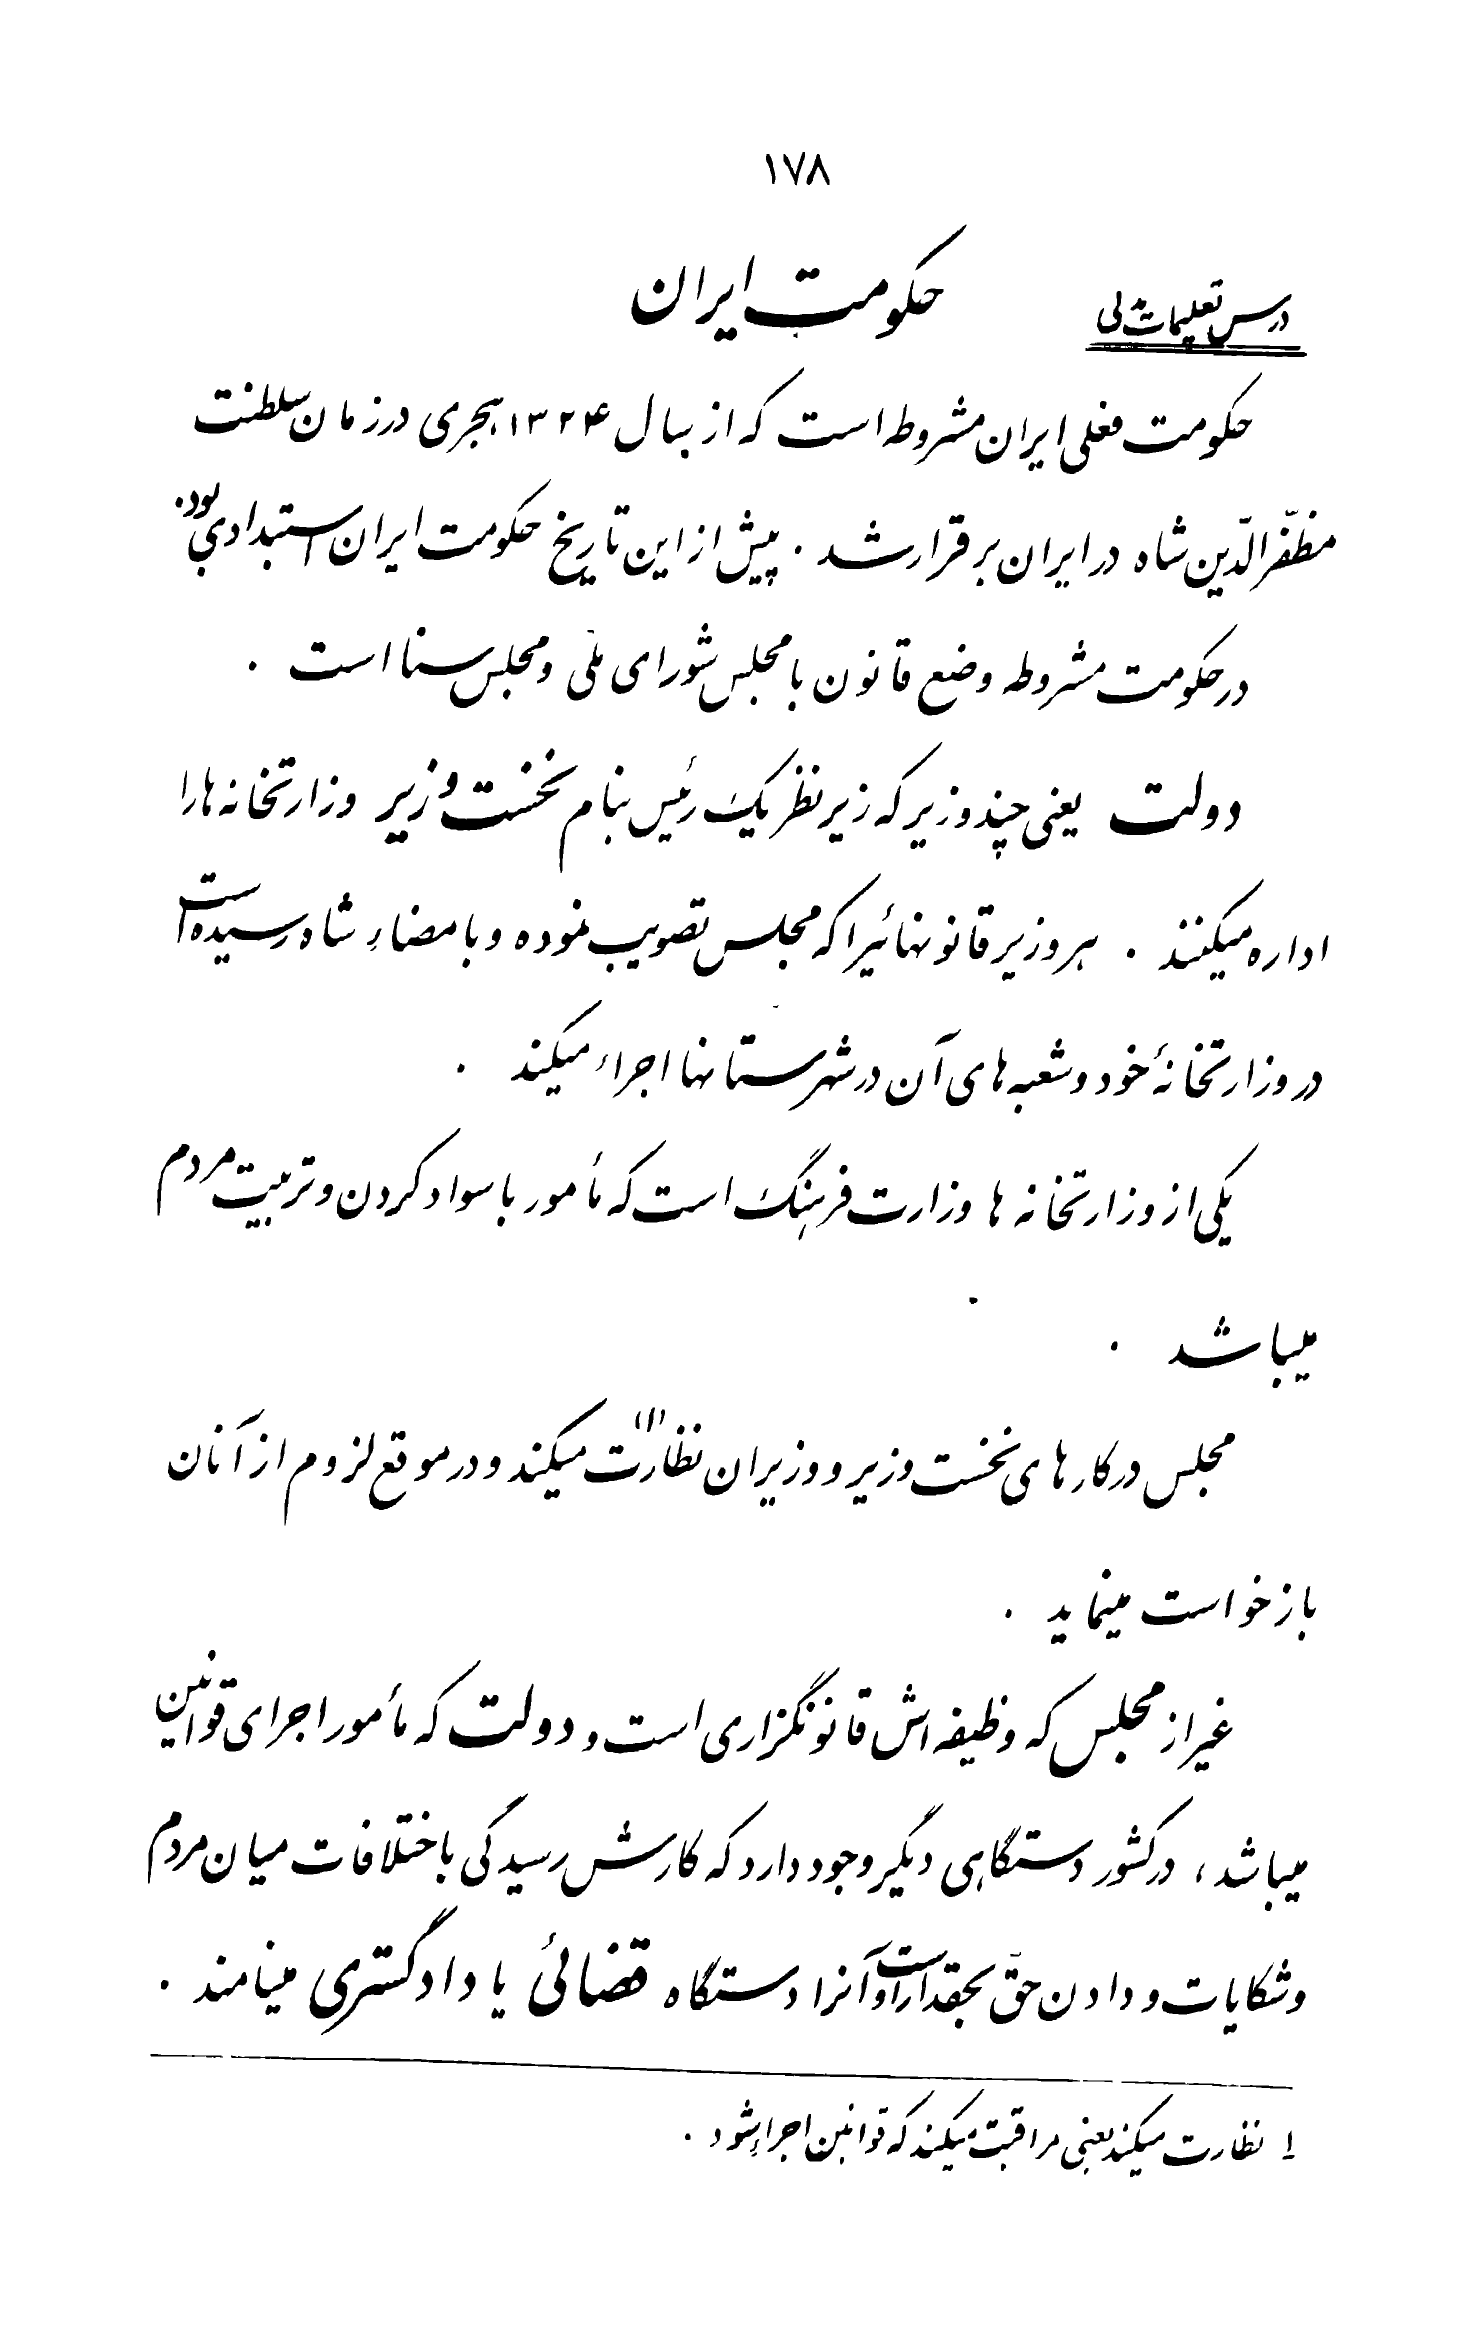 ۱۷۸
درس تعلیمات مدنی
حکومت ایران
حکومت فعلی ایران مشروطه است که از سال ۱۳۲۴ هجری در زمان سلطنت
مظفّرالدّین شاه در ایران برقرار شد . پیش از این تاریخ حکومت ایران استبدادی بود .
در حکومت مشروطه وضع قانون با مجلس شورای ملّی و مجلس سنا است .
دولت یعنی چند وزیر که زیر نظر یک رئیس بنام نخست وزیر وزارتخانه ها را
اداره میکنند . هر وزیر قانونهائیرا که مجلس تصویب نموده و بامضاءِ شاه رسیده است
در وزارتخانهٔ خود و شعبه های آن در شهرستانها اجراء میکند .
یکی از وزارتخانه ها وزارت فرهنگ است که مأمور باسواد کردن و تربیت مردم
میباشد .
مجلس در کارهای نخست وزیر و وزیران نظارت (۱) میکند و در موقع لزوم از آنان
بازخواست مینماید .
غیر از مجلس که وظیفه اش قانونگزاری است و دولت که مأمور اجرای قوانین
میباشد ، در کشور دستگاهی دیگر وجود دارد که کارش رسیدگی باختلافات میان مردم
و شکایات و دادن حقّ بحقدار است و آنرا دستگاه قضائی یا دادگستری مینامند .
۱ نظارت میکند یعنی مراقبت میکند که قوانین اجراءِ شود .